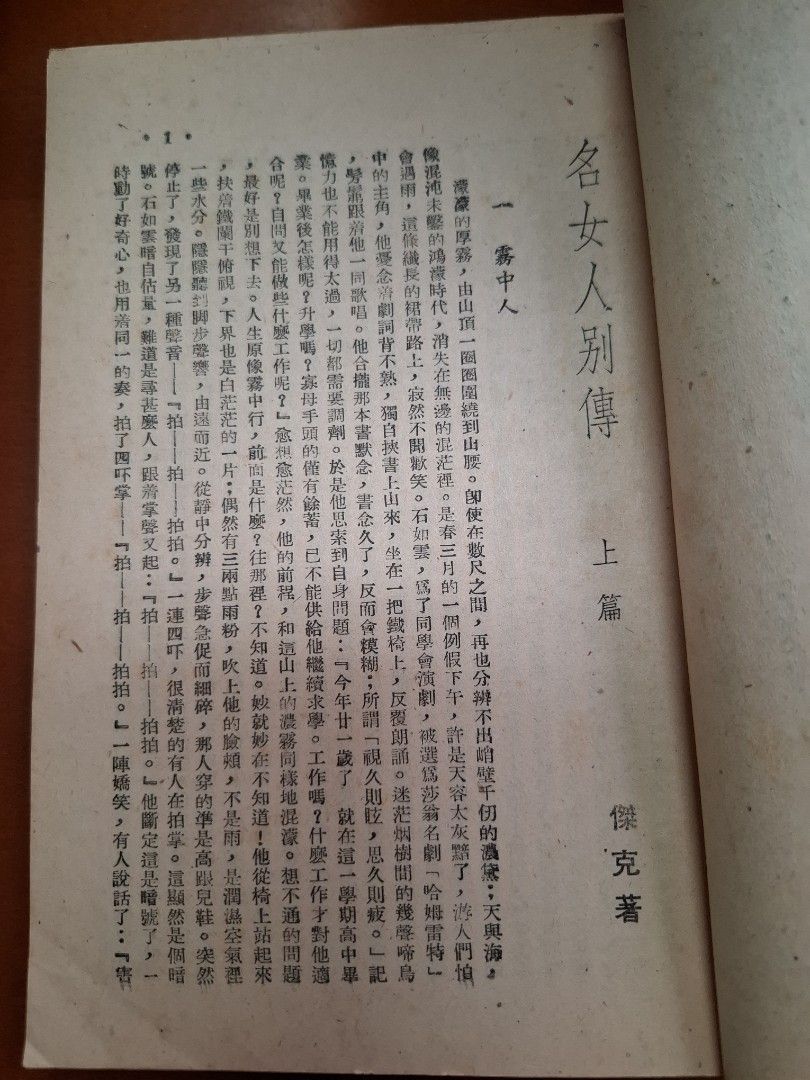 名女人別傳
上篇
傑克著
一 霧中人
濛濛的厚霧，由山頂一圈圈圍繞到山腰。卽使在數尺之間，再也分辨不出峭壁千仞的濃黛；天與海，
像混沌未鑿的鴻濛時代，消失在無邊的混茫裡。是春三月的一個例假下午，許是天容太灰黯了，游人們怕
會遇雨，這條纖長的裙帶路上，寂然不聞歡笑。石如雲，爲了同學會演劇，被選爲莎翁名劇「哈姆雷特」
中的主角，他憂念着劇詞背不熟，獨自挾書上山來，坐在一把鐵椅上，反覆朗誦。迷茫烟樹間的幾聲啼鳥
，髣髴跟着他一同歌唱。他合攏那本書默念，書念久了，反而會糢糊；所謂「視久則眩，思久則疲。」記
憶力也不能用得太過，一切都需要調劑。於是他思索到自身問題：『今年廿一歲了　就在這一學期高中畢
業。畢業後怎樣呢？升學嗎？寡母手頭的僅有餘蓄，已不能供給他繼續求學。工作嗎？什麼工作才對他適
合呢？自問又能做些什麼工作呢？』愈想愈茫然，他的前程，和這山上的濃霧同樣地混濛。想不通的問題
，最好是別想下去。人生原像霧中行，前面是什麼？往那裡？不知道。妙就妙在不知道！他從椅上站起來
，扶着鐵闌干俯視，下界也是白茫茫的一片；偶然有三兩點雨粉，吹上他的臉頰，不是雨，是潤濕空氣裡
一些水分。隱隱聽到脚步聲響，由遠而近。從靜中分辨，步聲急促而細碎，那人穿的準是高跟兒鞋。突然
停止了，發現了另一種聲音——『拍——拍——拍拍。』一連四吓，很清楚的有人在拍掌。這顯然是個暗
號。石如雲暗自估量，難道是尋甚麼人，跟着掌聲又起：『拍——拍——拍拍。』他斷定這是暗號了，一
時動了好奇心，也用着同一的奏，拍了四吓掌——『拍——拍——拍拍。』一陣嬌笑，有人說話了：『害
•1•